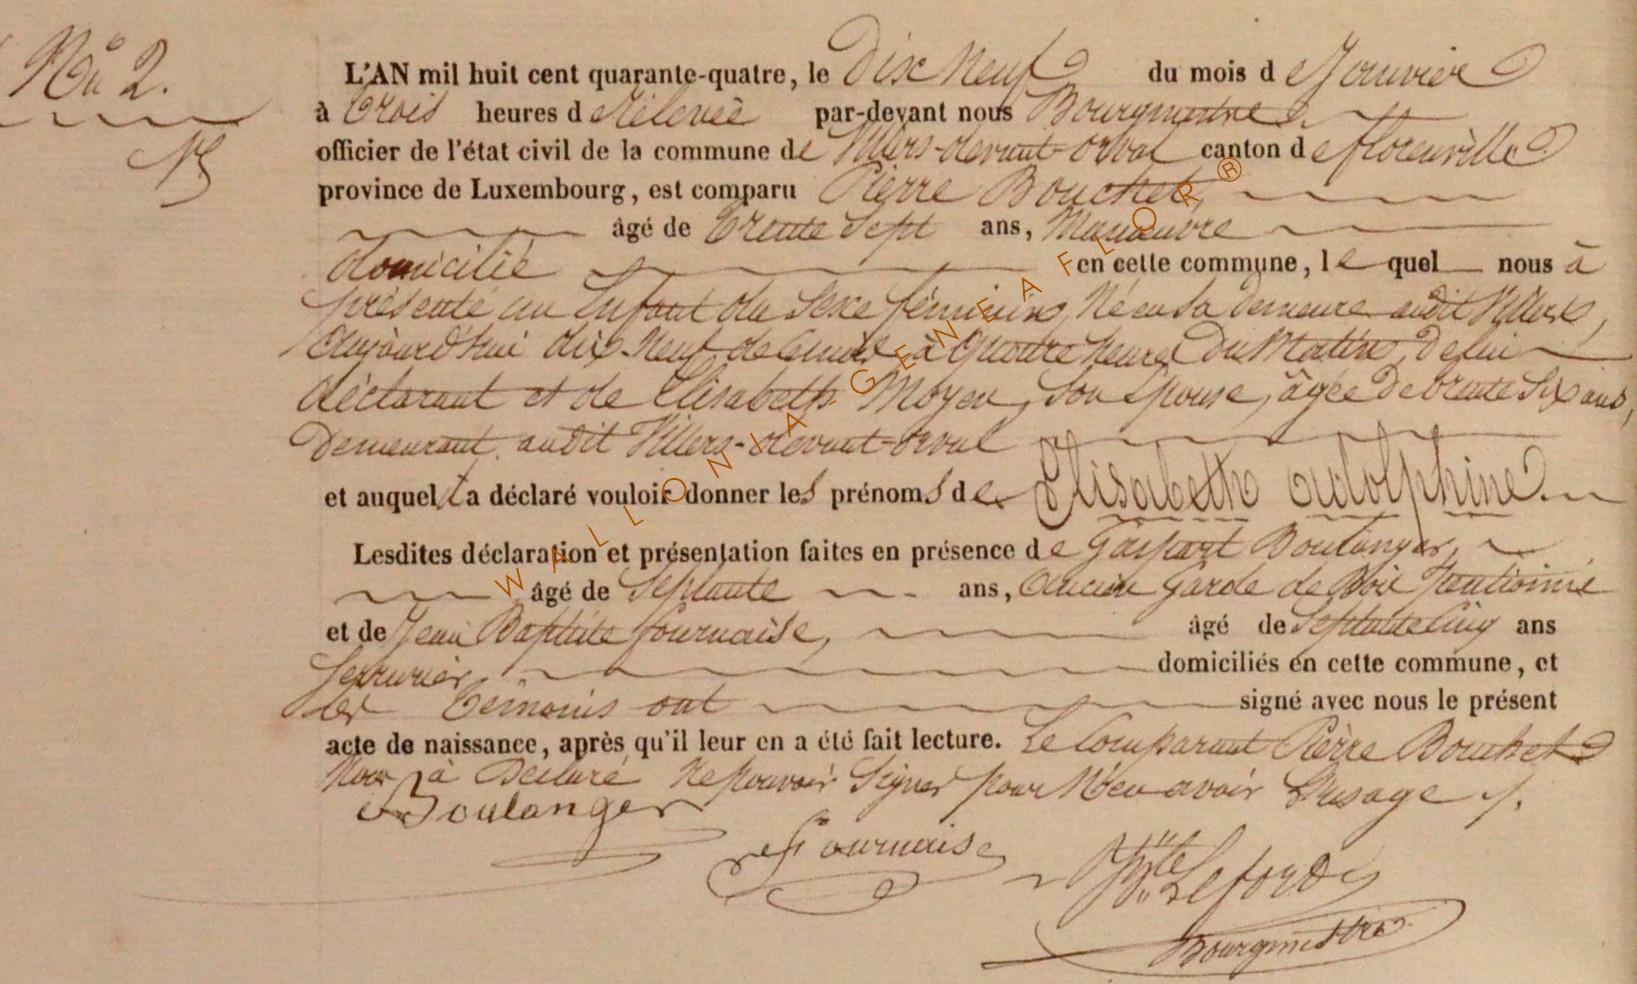 No 2.
L'AN mil huit cent quarante-quatre, le Dix Neuf du mois de Janvier
à Trois heures de Rélevée par-devant nous Bourgmestre
officier de l'état civil de la commune de Villers-devant-orval canton de florenville
province de Luxembourg, est comparu Pierre Bouchet,
âgé de Trente Sept ans, Manœuvre
domicilié en cette commune, le quel nous à
présenté un Enfant du Sexe féminin, Né en Sa Demeure audit Villers,
Aujourd'hui dix-Neuf de Courant à Quatre heures Du Matin, De lui
déclarant et de Elisabeth Moyen, Son Epouse, âgée De trente Six ans,
Demeurant audit Villers-devant-orval
et auquel a déclaré vouloir donner les prénoms de Elisabeth Adolphine.
Lesdites déclaration et présentation faites en présence de Gaspart Boulanger,
âgé de Septante ans, Ancien Garde de Bois Pentionné
et de Jean Baptiste fournaise, âgé de Septante Cinq ans
Serrurier, domiciliés en cette commune, et
les Témoins ont signé avec nous le présent
acte de naissance, après qu'il leur en a été fait lecture. Le Comparant Pierre Bouchet
Nous à Declaré Ne pouvoir Signer pour N'en avoir L'usage
Boulanger
Fournaise
Bourgmestre
WALLONIA-GENEAFLOR®